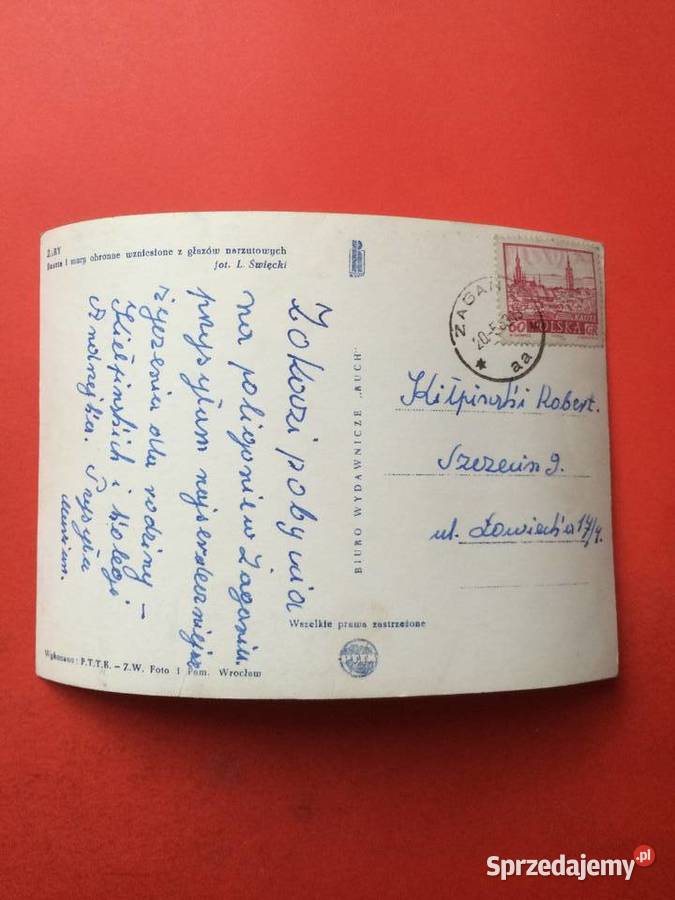 ŻARY
Baszta i mury obronne wzniesione z głazów narzutowych
fot. L. Święcki
Z okazji pobytu
na poligonie w Żaganiu
przysyłam najserdeczniejsze
życzenia dla rodziny –
Kiełpińskich i kolegi
Andrzejka. Przysyła
Wykonano: P.T.T.K. – Z.W. Foto i Pam. Wrocław
BIURO WYDAWNICZE „RUCH”
Wszelkie prawa zastrzeżone
ŻAGAŃ
20.5.
aa
60 POLSKA GR
KALISZ
Robert.
Szczecin 9.
ul. Łowiecka 17/4.
Sprzedajemy.pl